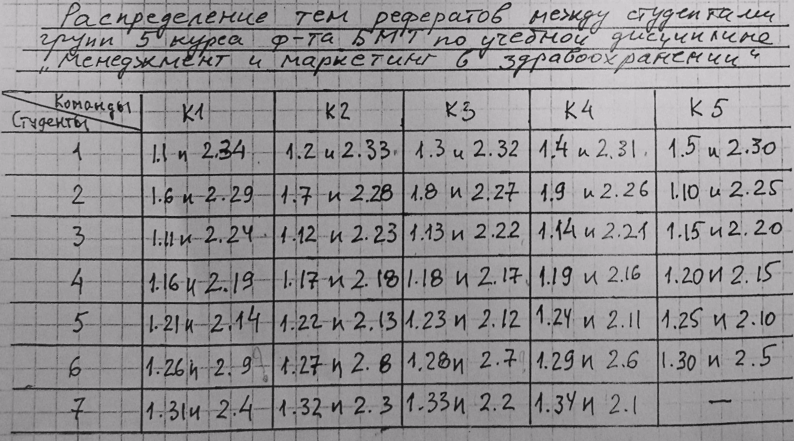 Распределение тем рефератов между студентами
групп 5 курса ф-та БМТ по учебной дисциплине
"Менеджмент и маркетинг в здравоохранении"
Команды К1 К2 К3 К4 К5
Студенты
1 1.1 и 2.34 1.2 и 2.33 1.3 и 2.32 1.4 и 2.31 1.5 и 2.30
2 1.6 и 2.29 1.7 и 2.28 1.8 и 2.27 1.9 и 2.26 1.10 и 2.25
3 1.11 и 2.24 1.12 и 2.23 1.13 и 2.22 1.14 и 2.21 1.15 и 2.20
4 1.16 и 2.19 1.17 и 2.18 1.18 и 2.17 1.19 и 2.16 1.20 и 2.15
5 1.21 и 2.14 1.22 и 2.13 1.23 и 2.12 1.24 и 2.11 1.25 и 2.10
6 1.26 и 2.9 1.27 и 2.8 1.28 и 2.7 1.29 и 2.6 1.30 и 2.5
7 1.31 и 2.4 1.32 и 2.3 1.33 и 2.2 1.34 и 2.1 —